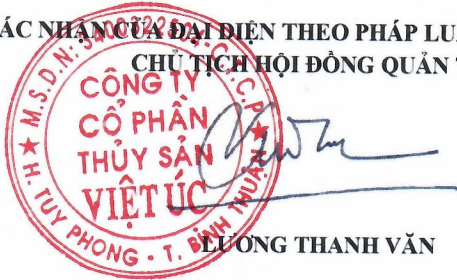 ÁC NHẬN CỦA ĐẠI DIỆN THEO PHÁP LU
CHỦ TỊCH HỘI ĐỒNG QUẢN
M.S.D.N: 3400722502-C.T.C.P
CÔNG TY
CỔ PHẦN
THỦY SẢN
VIỆT ÚC
H. TUY PHONG - T. BÌNH THUẬN
LƯƠNG THANH VĂN